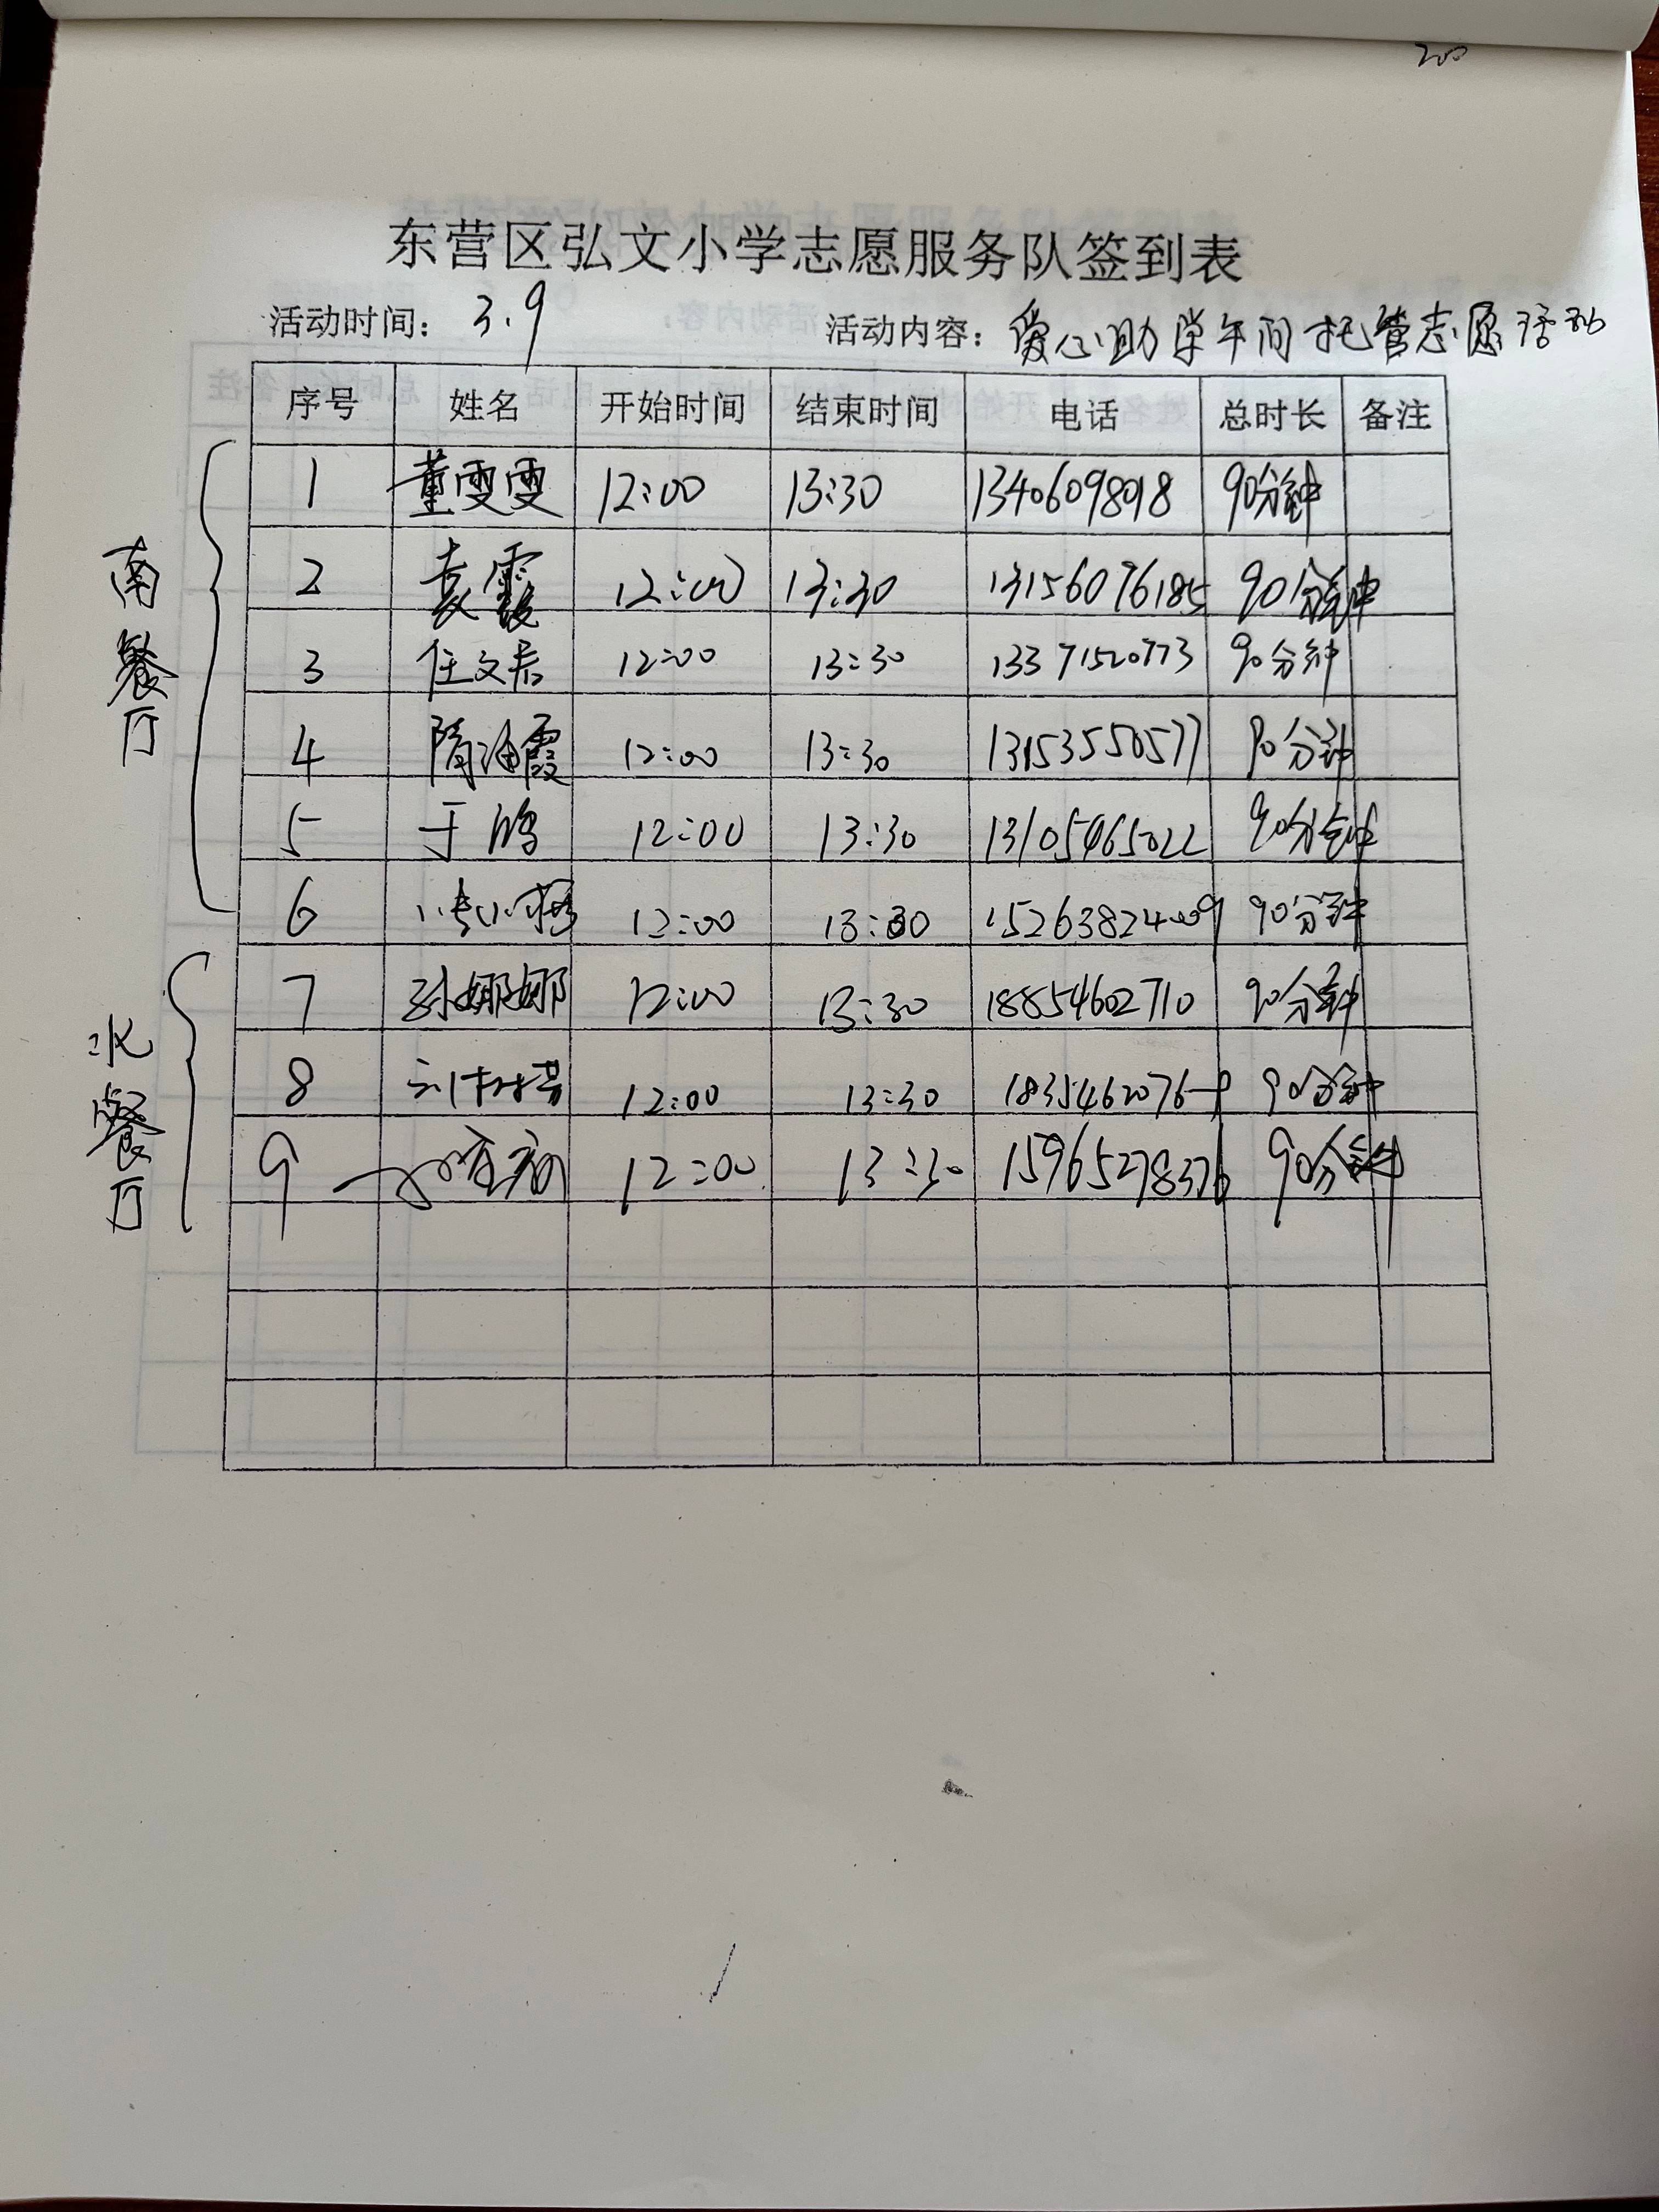 200
东营区弘文小学志愿服务队签到表
活动时间: 3.9 活动内容: 爱心助学午间托管志愿活动
序号 姓名 开始时间 结束时间 电话 总时长 备注
南餐厅
1 董雯雯 12:00 13:30 13406098098 90分钟
2 袁霞 12:00 13:30 13156076185 90分钟
3 任文君 12:00 13:30 13371520773 90分钟
4 隋海霞 12:00 13:30 13153550577 90分钟
5 于鸿 12:00 13:30 13105465022 90分钟
6 12:00 13:30 15263824009 90分钟
北餐厅
7 孙娜娜 12:00 13:30 18854602710 90分钟
8 12:00 13:30 90分钟
9 12:00 13:30 15965278376 90分钟